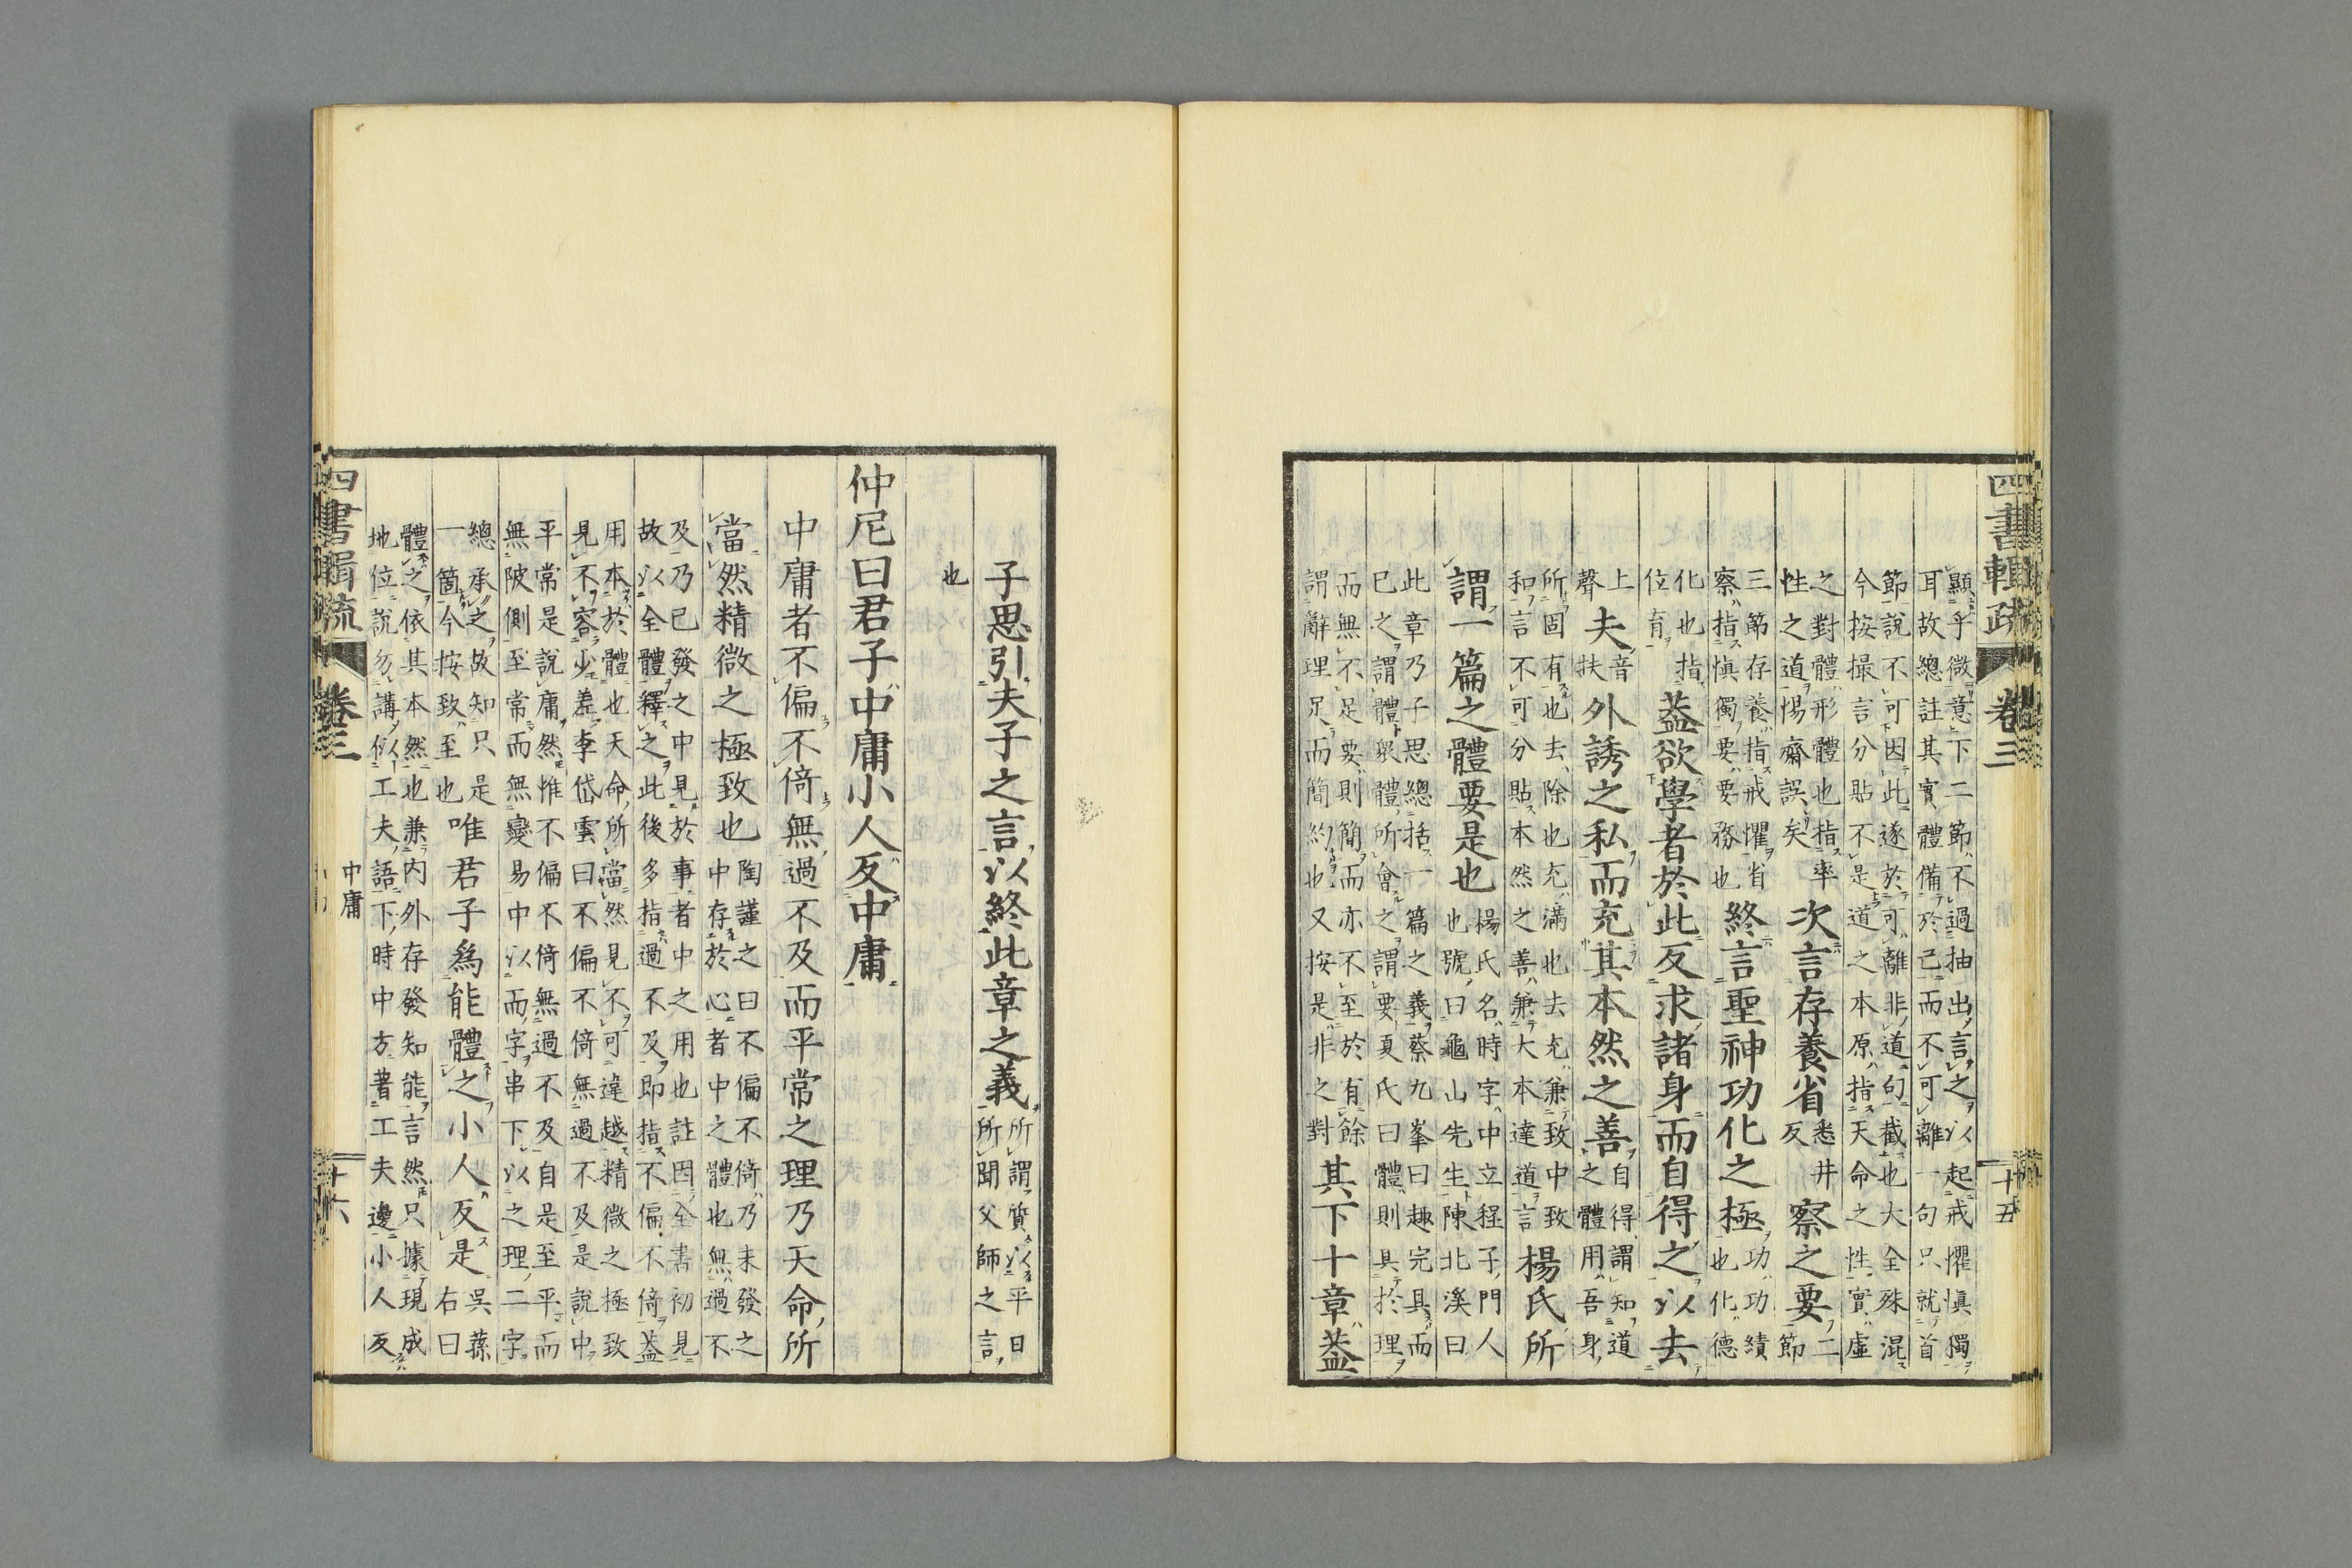 四書輯疏 卷三 十五
顯乎微意下二節不過抽出言之以起戒懼愼獨
耳故總註其實體備於己而不可離一句只就首
節說不可因此遂於可離非道句截也大全殊混
今按撮言分貼不是道之本原指天命之性實虛
之對體形體也指率
性之道惕齋誤矣
次言存養省
悉井
反
察之要
二
節
三節存養指戒懼省
察指愼獨要要務也
終言聖神功化之極
功功績
也化德
化也指
位育
蓋欲學者於此反求諸身而自得之以去
上
聲
夫
音
扶
外誘之私而充其本然之善
自得謂知道
之體用吾身
所固有也去除也充滿也去充兼致中致
和言不可分貼本然之善兼大本達道言
楊氏所
謂一篇之體要是也
楊氏名時字中立程子門人
也號曰龜山先生陳北溪曰
此章乃子思總括一篇之義蔡九峯曰趣完具而
已之謂體衆體所會之謂要夏氏曰體則具於理
而無不足要則簡而亦不至於有餘
謂辭理足而簡約也又按是非之對
其下十章蓋
子思引夫子之言以終此章之義
所謂質以平日
所聞父師之言
也
仲尼曰君子中庸小人反中庸
中庸者不偏不倚無過不及而平常之理乃天命所
當然精微之極致也
陶謹之曰不偏不倚乃未發之
中存於心者中之體也無過不
及乃已發之中見於事者中之用也註因全書初見
故以全體釋之此後多指過不及即指不偏不倚蓋
用本於體也天命所當然見不可違越精微之極致
見不容少差李岱雲曰不偏不倚無過不及是說中
平常是說庸然惟不偏不倚無過不及自是至平而
無陂側至常而無變易中以而字串下以之理二字
總承之故知只是
一箇今按致至也
唯君子爲能體之小人反是
吳蓀
右曰
體之依其本然也兼內外存發知能言然只據現成
地位說勿講似工夫語下時中方著工夫邊小人反
四書輯疏 卷三 中庸 十六